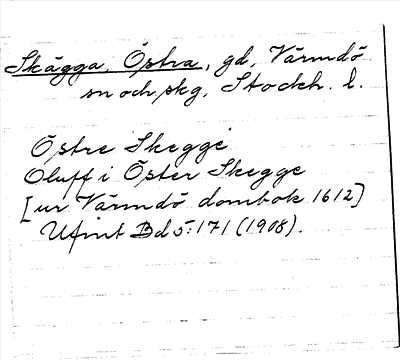 Skägga, Östra, gd, Värmdö
sn och skg, Stockh. l.
Östre Skegge
Oluff i Öster Skegge
[ur Värmdö dombok 1612]
Ufmt Bd 5:171 (1908).